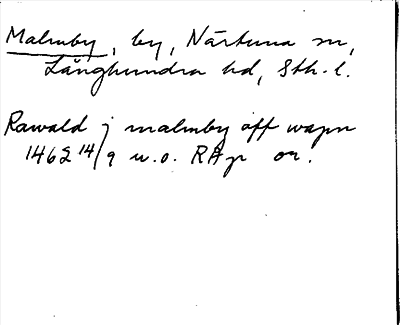 Malmby, by, Närtuna sn,
Långhundra hd, Sth. l.
Rawald j malmby aff wapn
1462 14/9 u.o. RAp or.